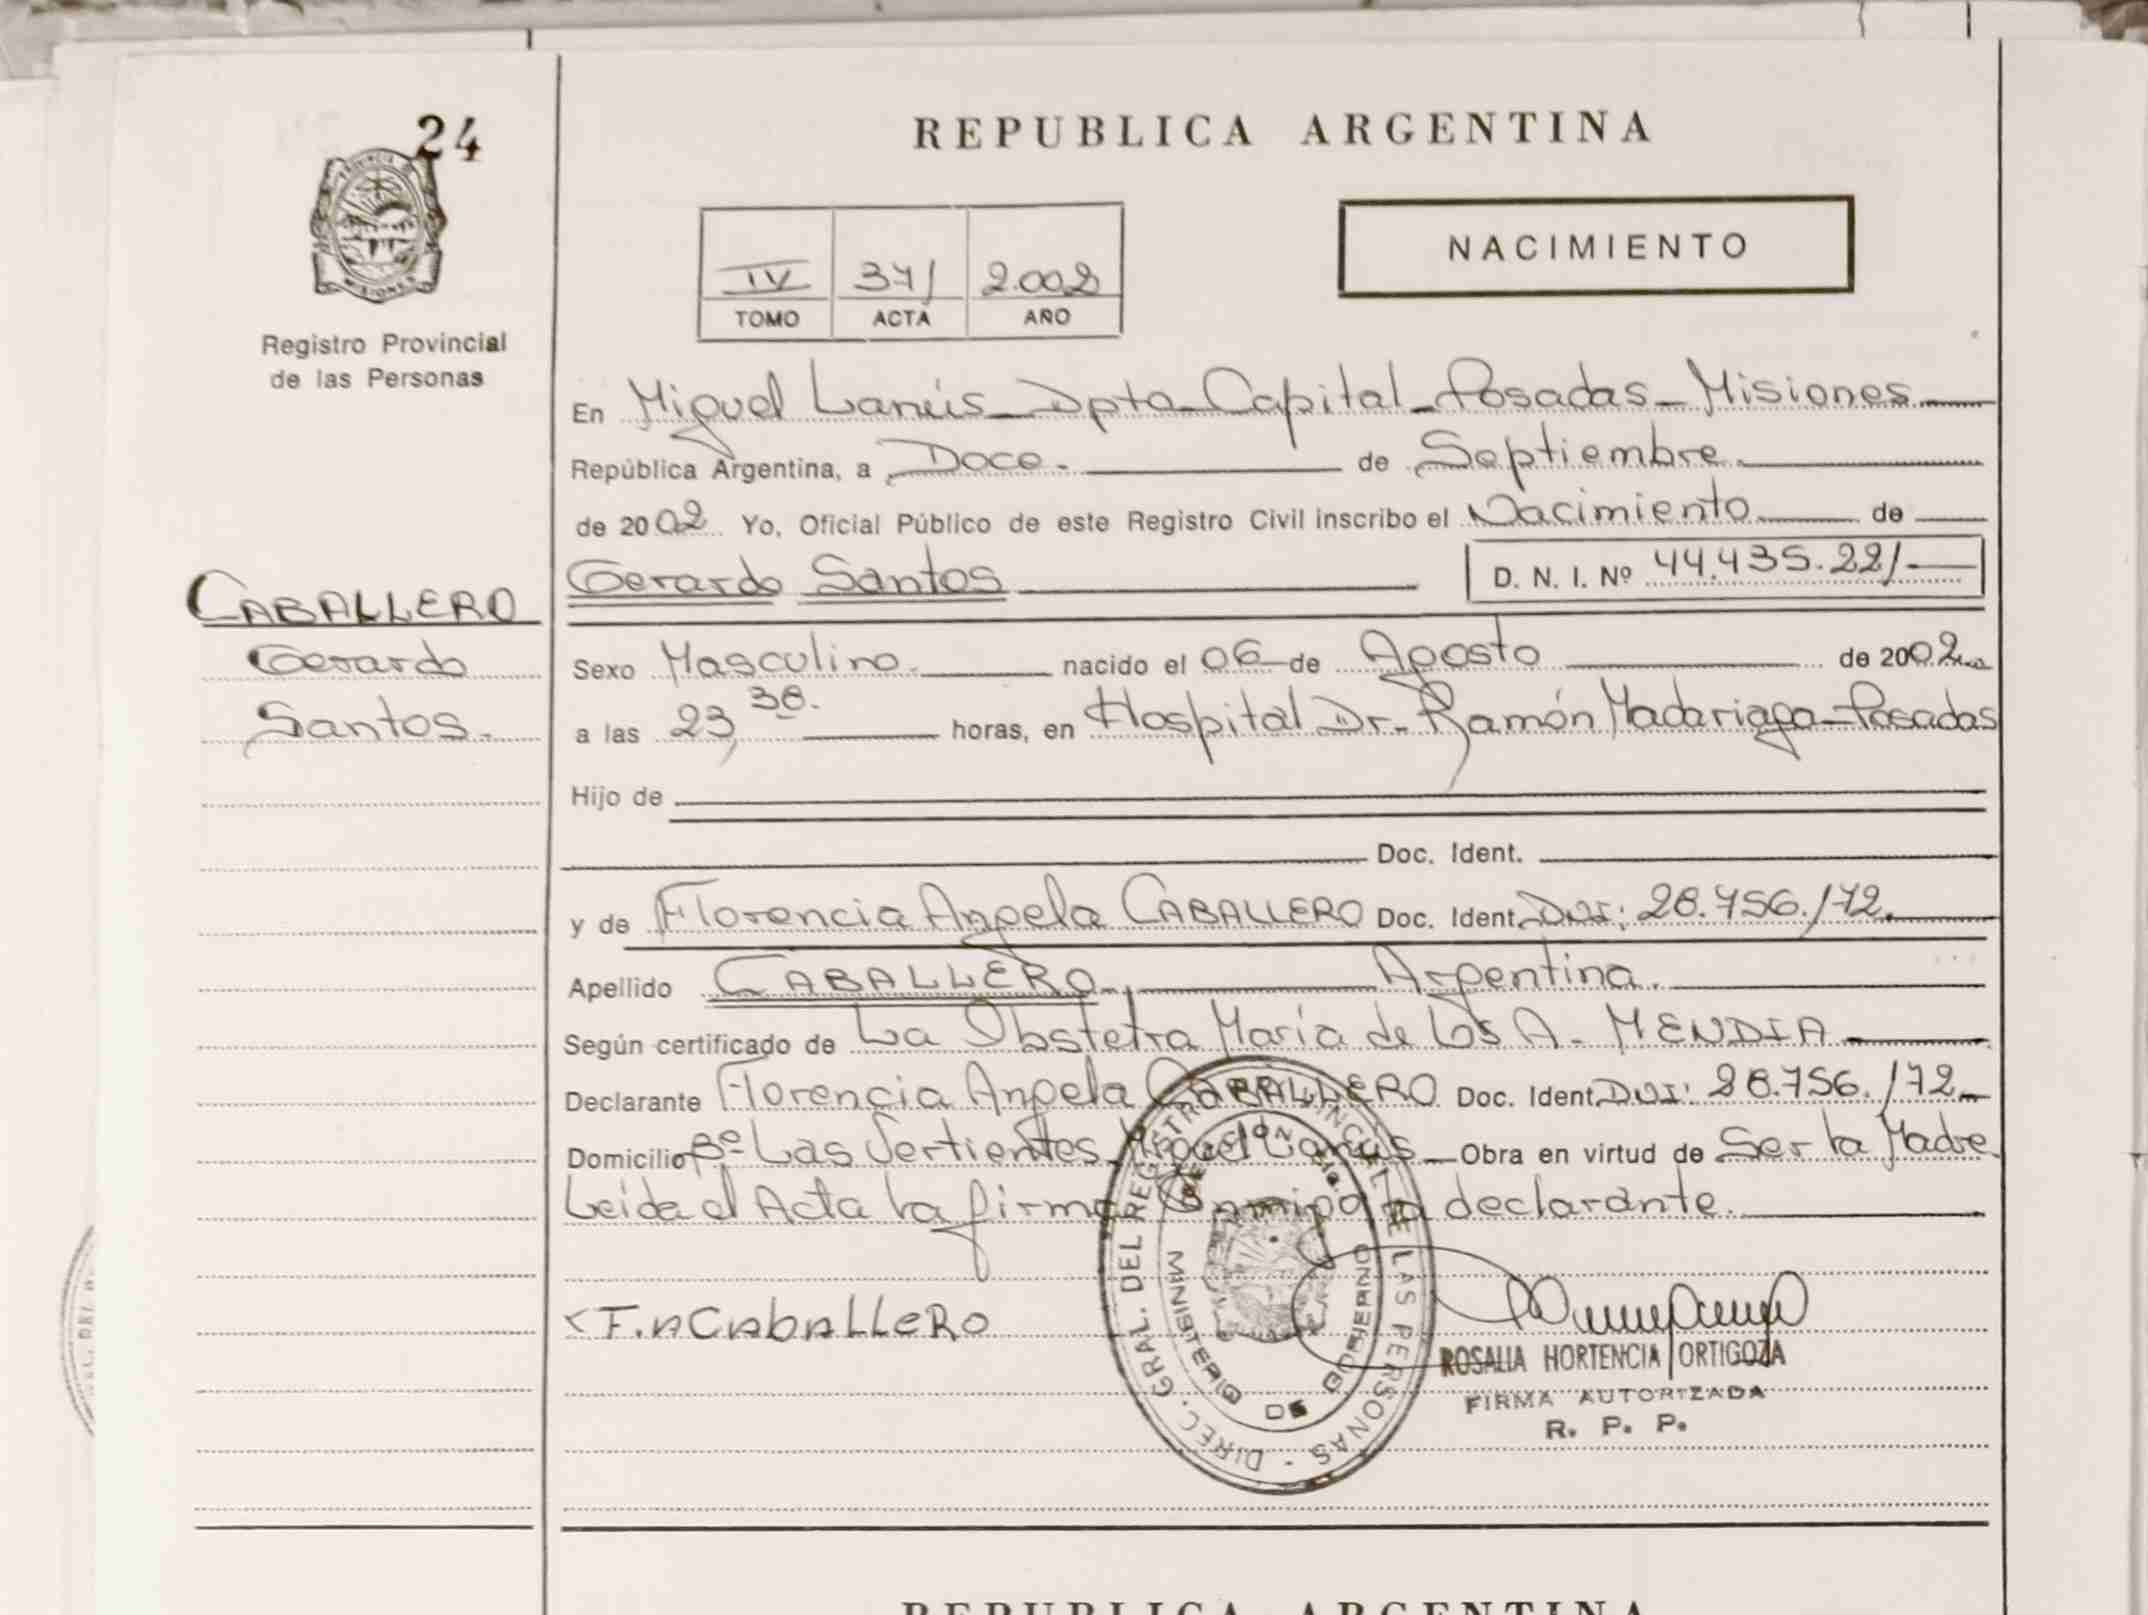 24
REPUBLICA ARGENTINA
NACIMIENTO
IV 371 2.002
TOMO ACTA AÑO
PROVINCIA DE
MISIONES
Registro Provincial
de las Personas
En Miguel Lanús - Dpto - Capital - Posadas - Misiones
República Argentina, a Doce. de Septiembre.
de 2002 Yo, Oficial Público de este Registro Civil inscribo el Nacimiento de
Gerardo Santos D. N. I. Nº 44.435.221
CABALLERO
Gerardo
Santos.
Sexo Masculino. nacido el 06 de Agosto de 2002
a las 23,30. horas, en Hospital Dr. Ramón Madariaga - Posadas
Hijo de
Doc. Ident.
y de Florencia Angela CABALLERO Doc. Ident. DNI: 28.756.172.
Apellido CABALLERO. Argentina.
Según certificado de La Obstetra María de Los A. MENDIA
Declarante Florencia Angela CABALLERO Doc. Ident. DNI: 28.756.172
Domicilio Bº Las Vertientes - Miguel Lanús - Obra en virtud de Ser la Madre
Leida el Acta la firma Conmigo la declarante.
F.A CABALLERO
DIREC. GRAL. DEL REGISTRO PROVINCIAL DE LAS PERSONAS -
MINISTERIO DE GOBIERNO
ROSALIA HORTENCIA ORTIGOZA
FIRMA AUTORIZADA
R. P. P.
REPUBLICA ARGENTINA